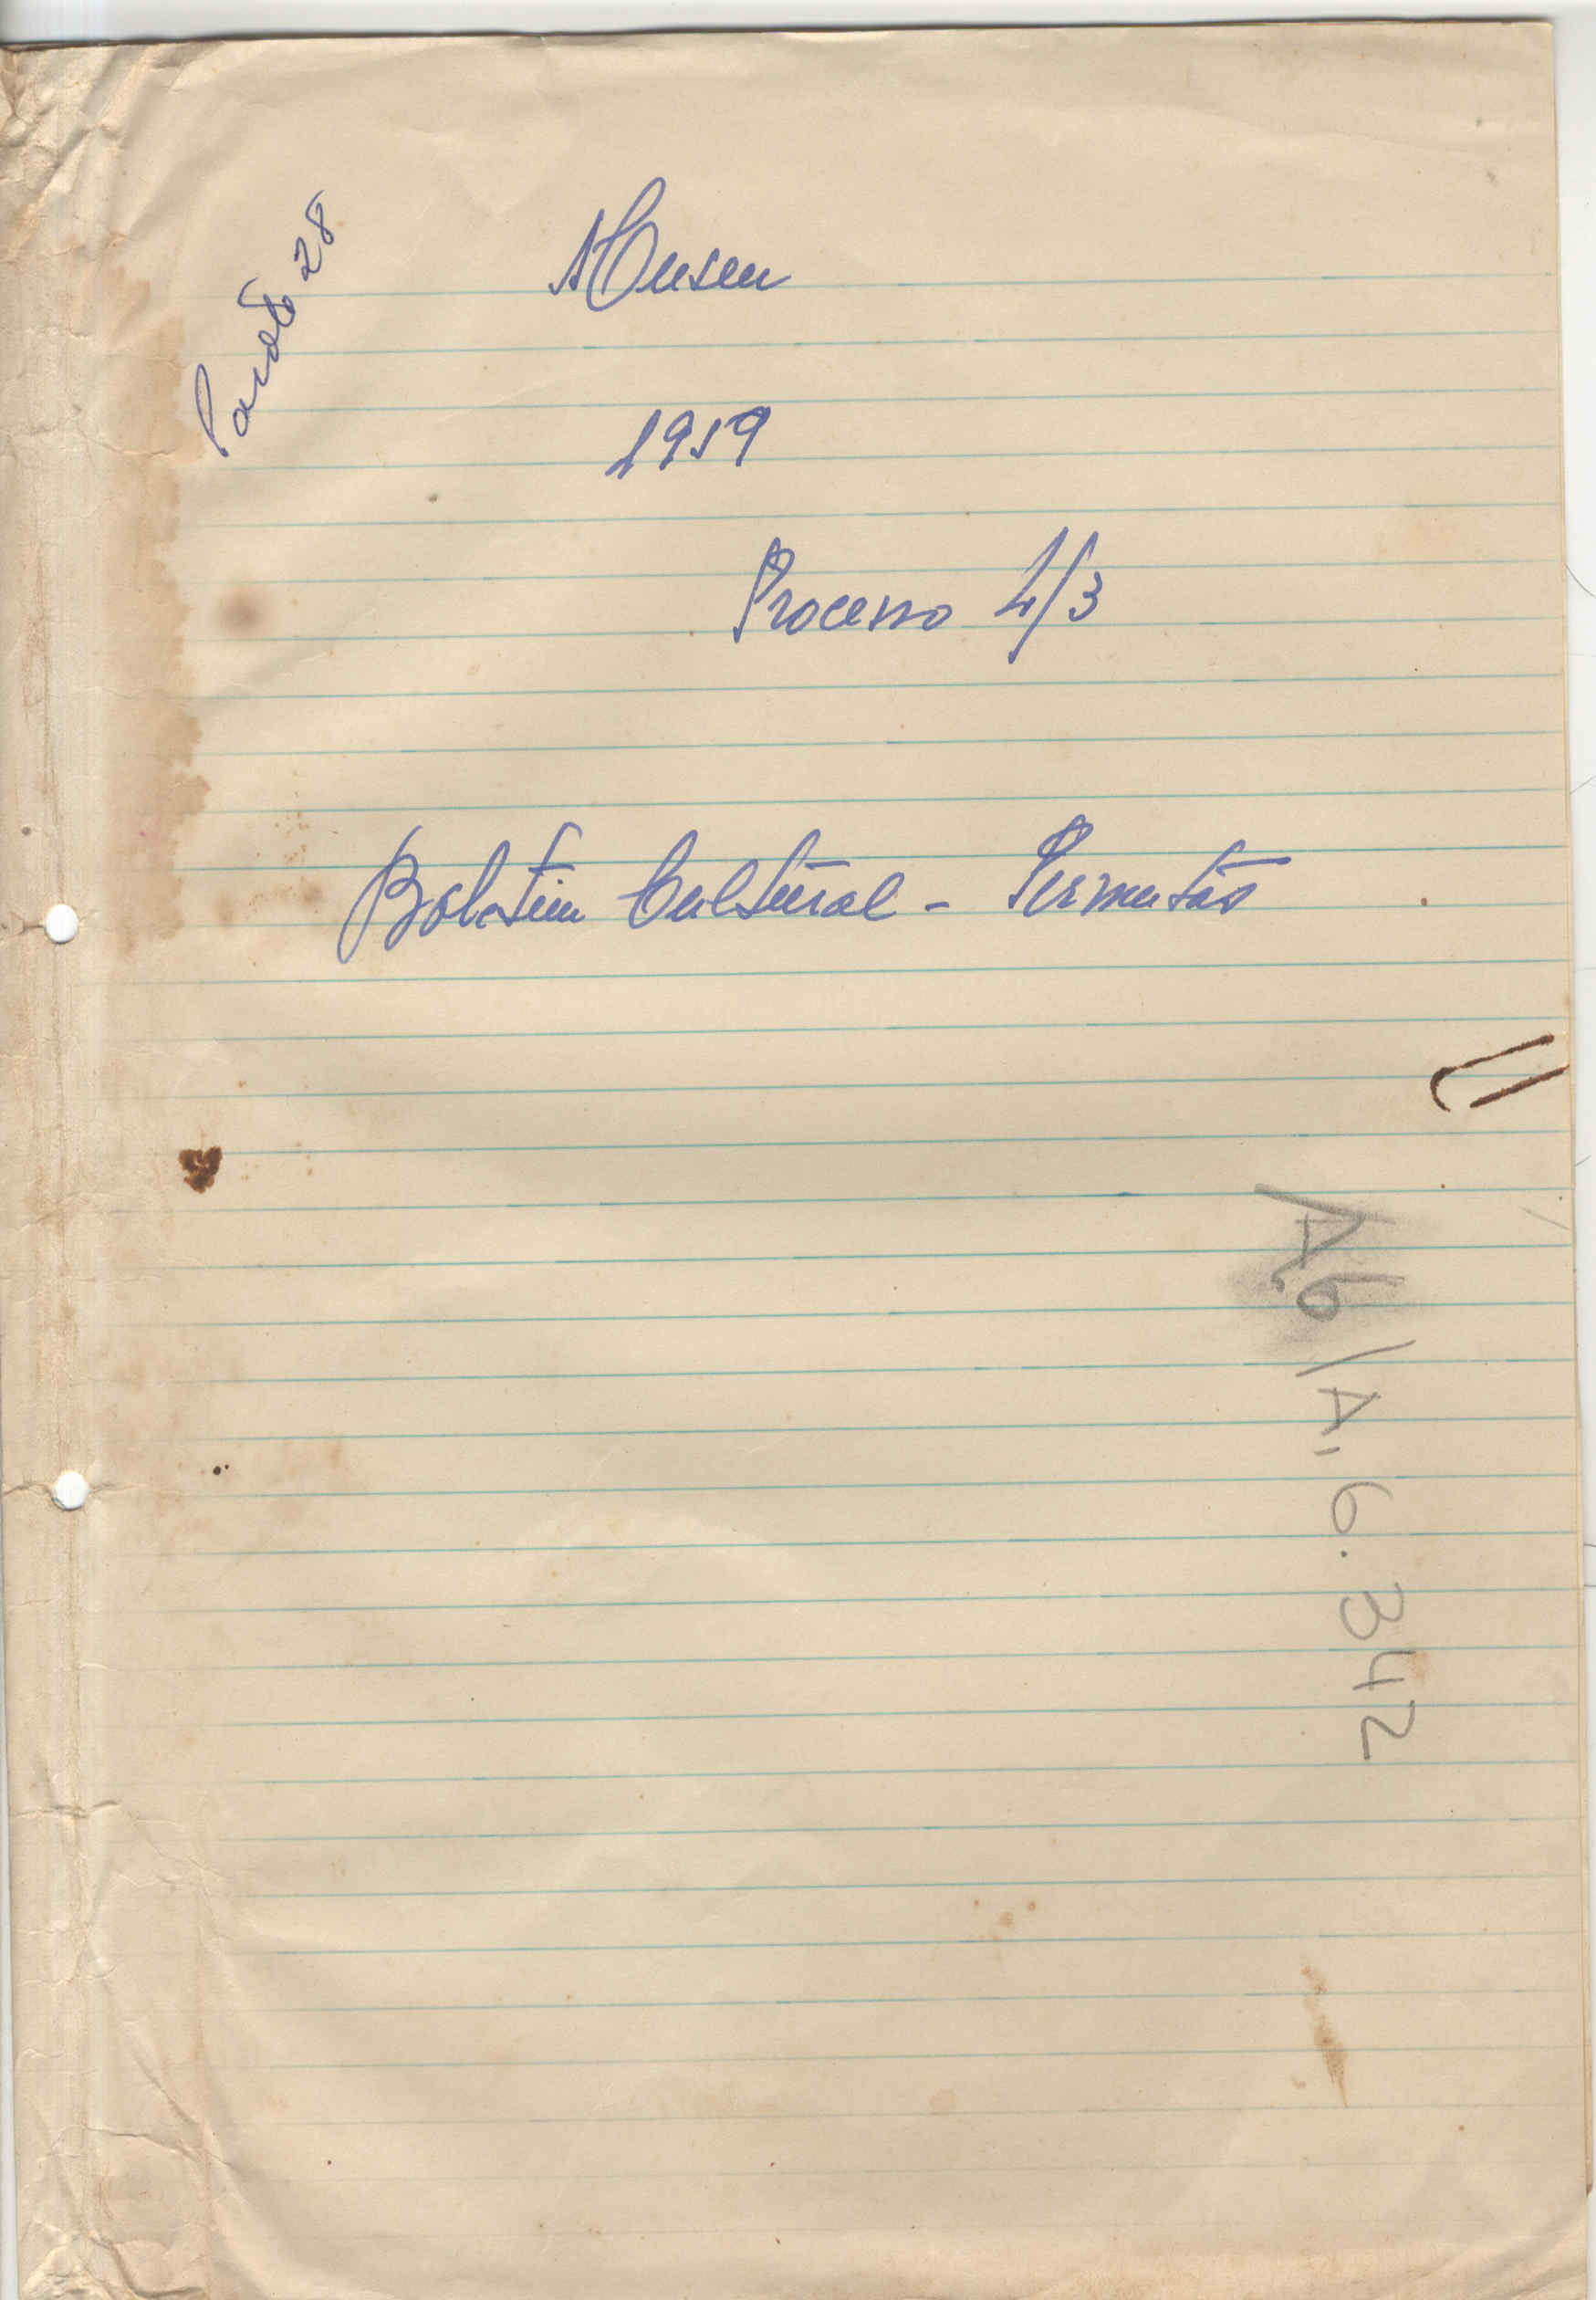 Pacote 28
Museu
1959
Processo 4/3
Boletim Cultural - Permutas
A6/A,6.342